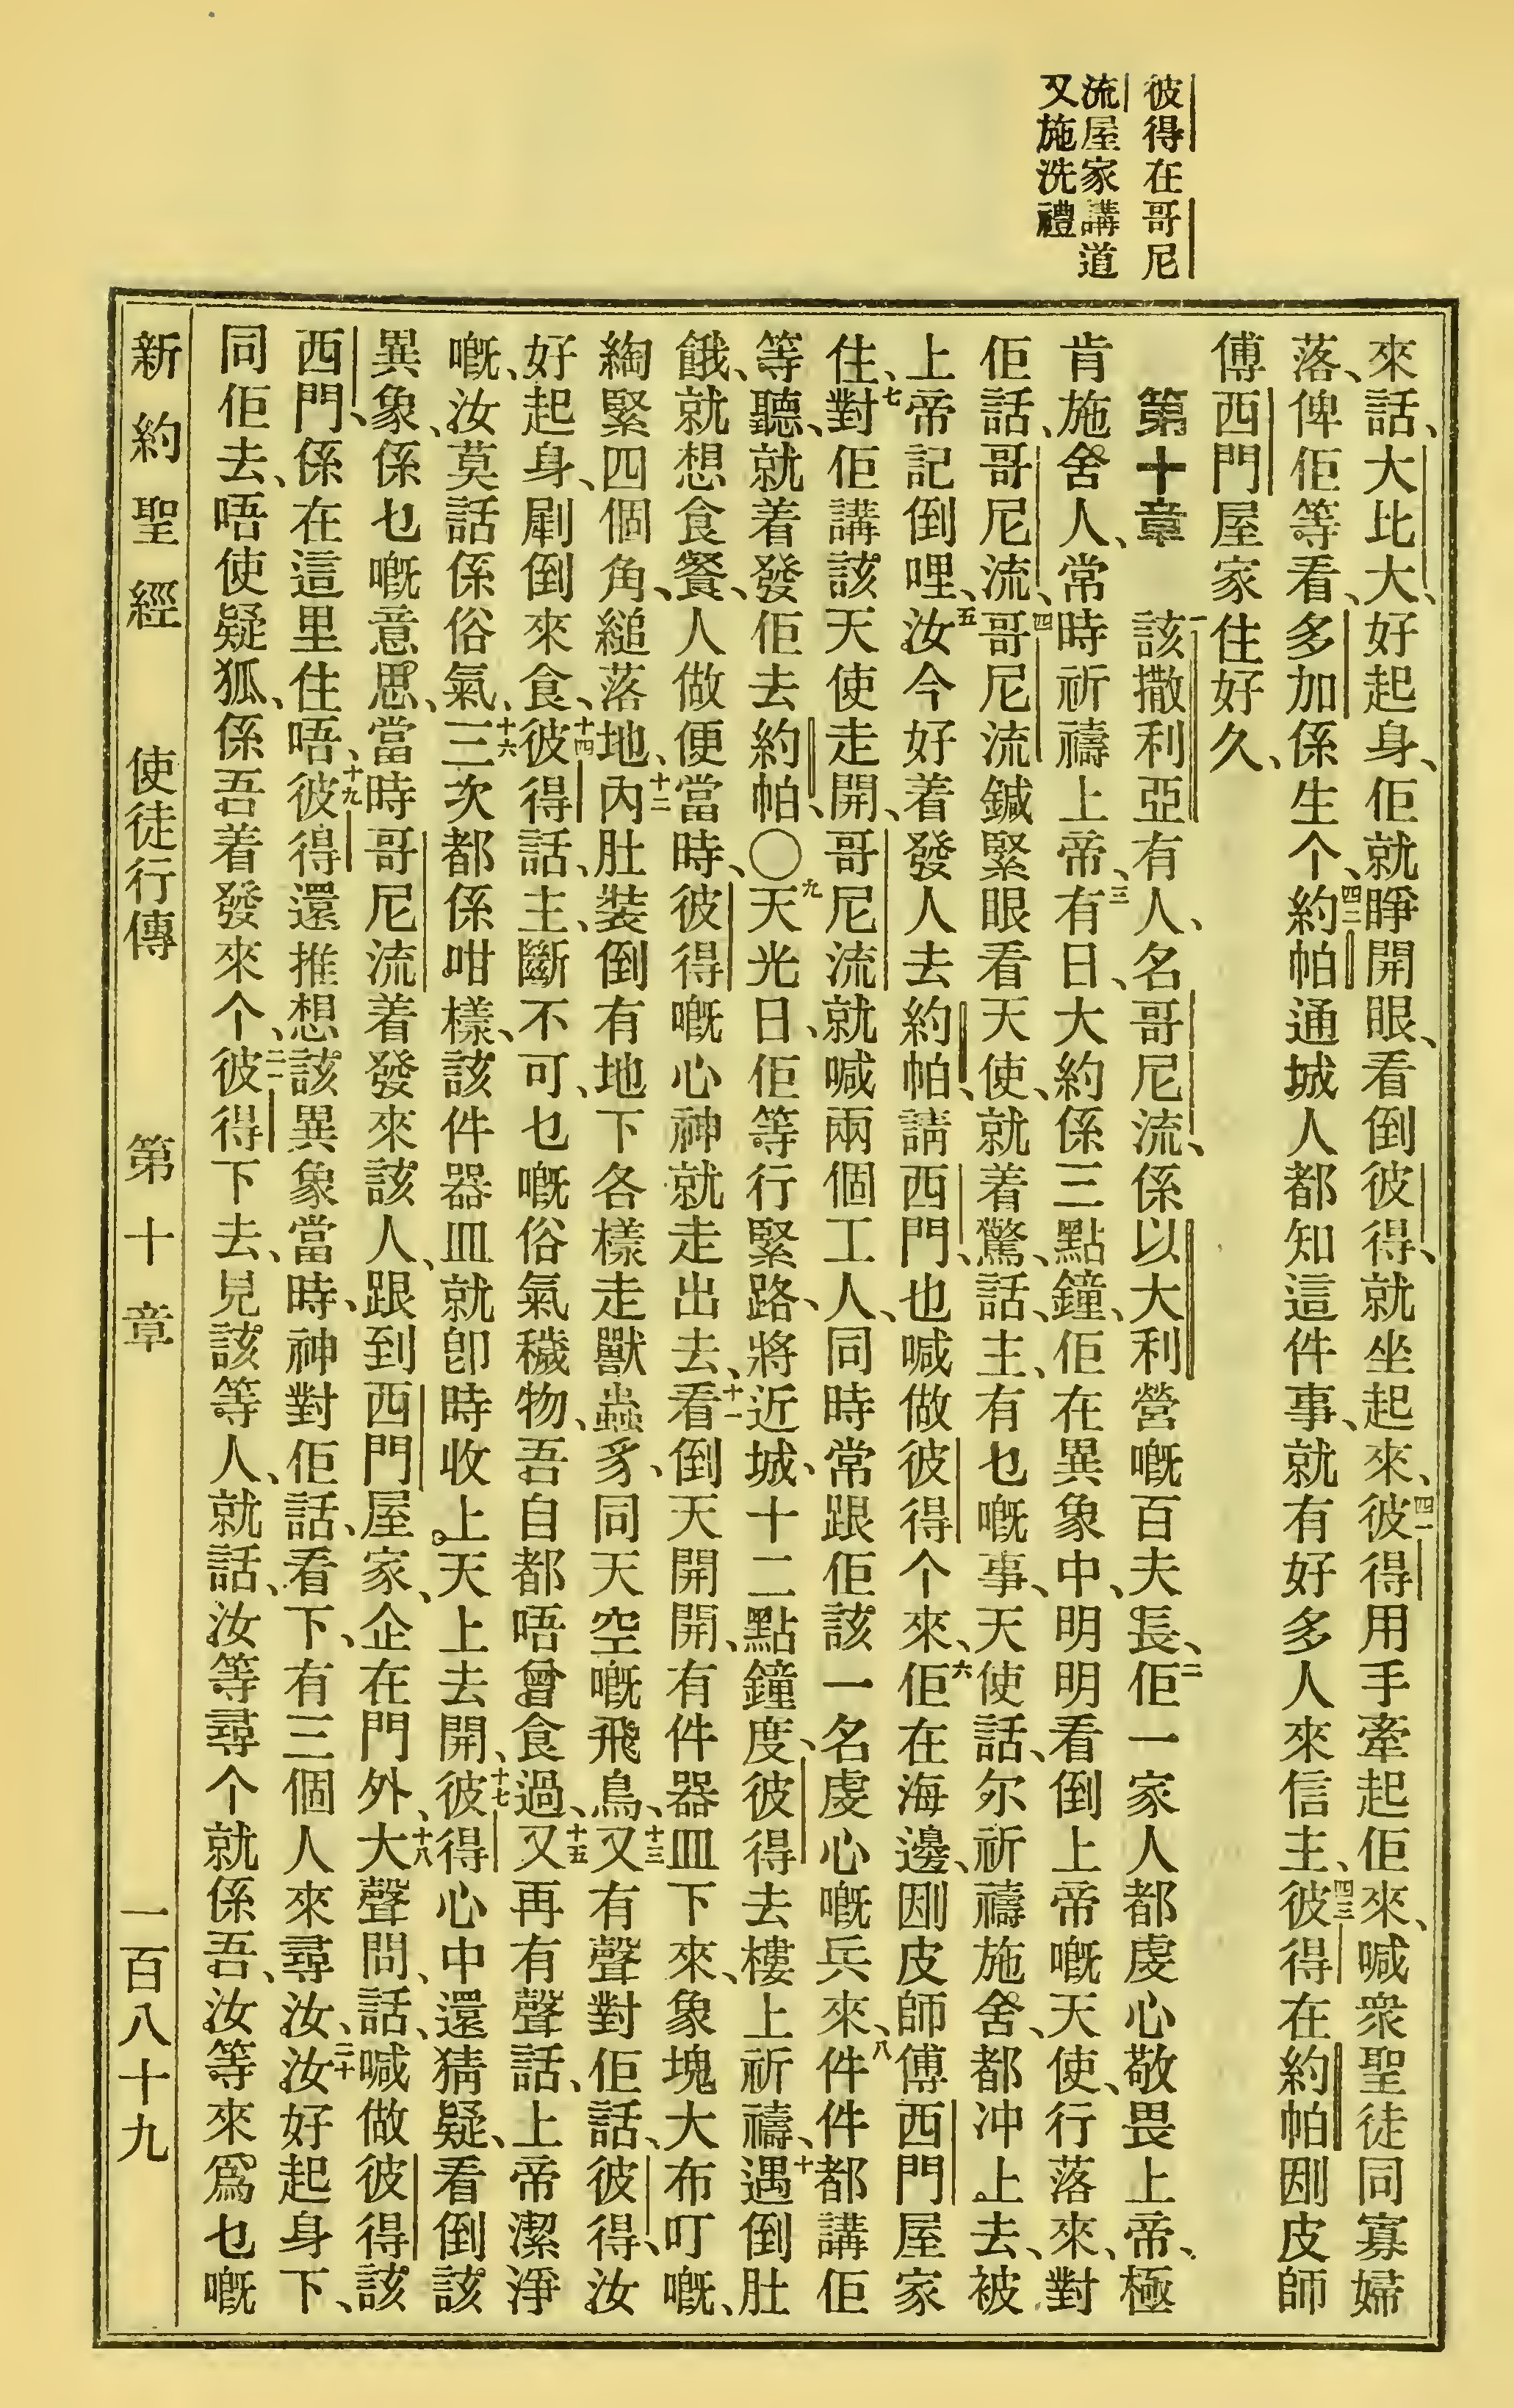 彼得在哥尼
流屋家講道
又施洗禮
來話、大比大、好起身、佢就睜開眼、看倒彼得、就坐起來、四一彼得用手牽起佢來、喊衆聖徒同寡婦
落、俾佢等看、多加係生个、四二約帕通城人都知這件事、就有好多人來信主、四三彼得在約帕㓤皮師
傅西門屋家住好久、
第十章 一該撒利亞有人、名哥尼流、係以大利營嘅百夫長、二佢一家人都虔心敬畏上帝、極
肯施舍人、常時祈禱上帝、三有日、大約係三點鐘、佢在異象中、明明看倒上帝嘅天使、行落來、對
佢話、哥尼流、四哥尼流鍼緊眼看天使、就着驚、話、主、有乜嘅事、天使話、尔祈禱施舍、都冲上去、被
上帝記倒哩、五汝今好着發人去約帕、請西門、也喊做彼得个來、六佢在海邊、㓤皮師傅西門屋家
住、七對佢講該天使走開、哥尼流就喊兩個工人、同時常跟佢該一名虔心嘅兵來、八件件都講佢
等聽、就着發佢去約帕、〇九天光日、佢等行緊路、將近城、十二點鐘度、彼得去樓上祈禱、十遇倒肚
餓、就想食餐、人做便當時、彼得嘅心神就走出去、十一看倒天開開、有件器皿下來、象塊大布叮嘅、
綯緊四個角、縋落地、十二內肚裝倒有地下各樣走獸蟲豸、同天空嘅飛鳥、十三又有聲對佢話、彼得、汝
好起身、㓤倒來食、十四彼得話、主、斷不可、乜嘅俗氣穢物、吾自都唔曾食過、十五又再有聲話、上帝潔淨
嘅、汝莫話係俗氣、十六三次都係咁樣、該件器皿就卽時收上天上去開、十七彼得心中還猜疑、看倒該
異象、係乜嘅意思、當時哥尼流着發來該人、跟到西門屋家、企在門外、十八大聲問、話、喊做彼得該
西門、係在這里住唔、十九彼得還推想該異象當時、神對佢話、看下、有三個人來尋汝、二十汝好起身下、
同佢去、唔使疑狐、係吾着發來个、二一彼得下去、見該等人、就話、汝等尋个就係吾、汝等來爲乜嘅
新約聖經 使徒行傳 第十章 一百八十九